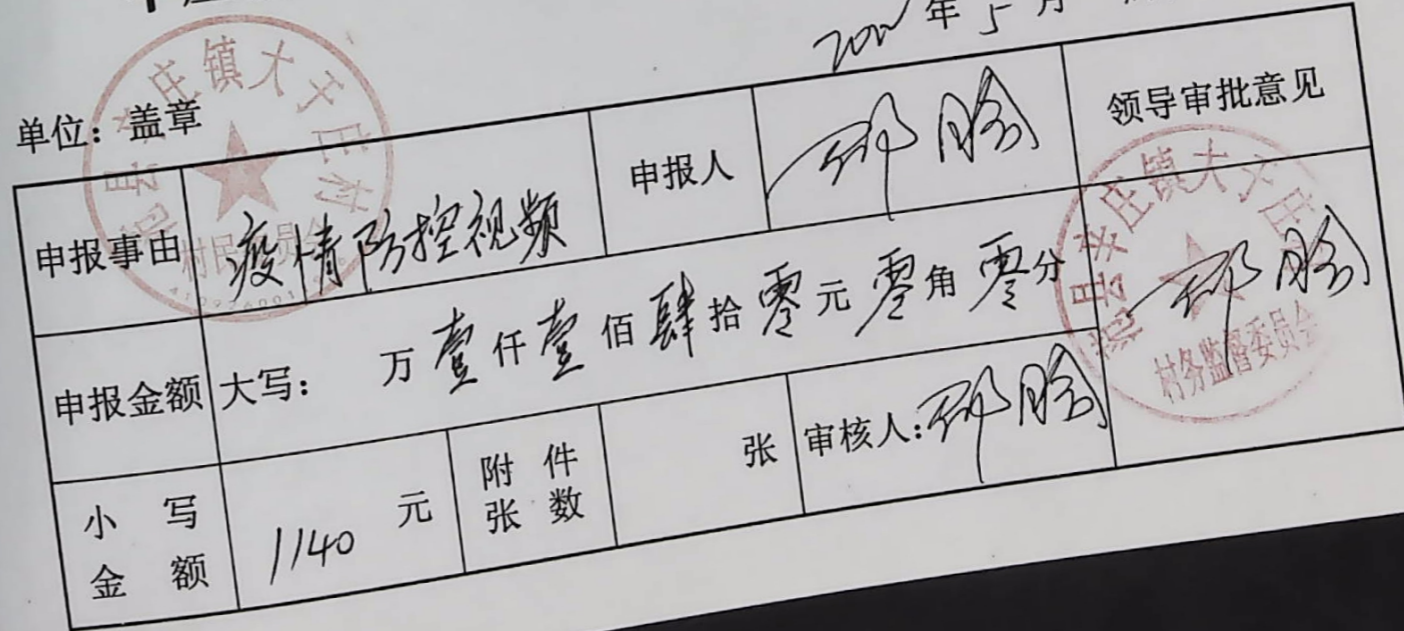 年5月
单位：盖章
申报事由 疫情防控视频 申报人 邓胎 领导审批意见
申报金额 大写： 万壹仟壹佰肆拾零元零角零分
小写金额 1140元 附件张数 张 审核人：
庄镇大于庄村
村民委员会
庄镇大于庄
村务监督委员会